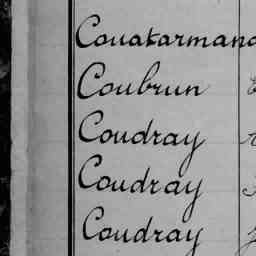 Couatarmanc
Coubrun
Coudray
Coudray
Coudray